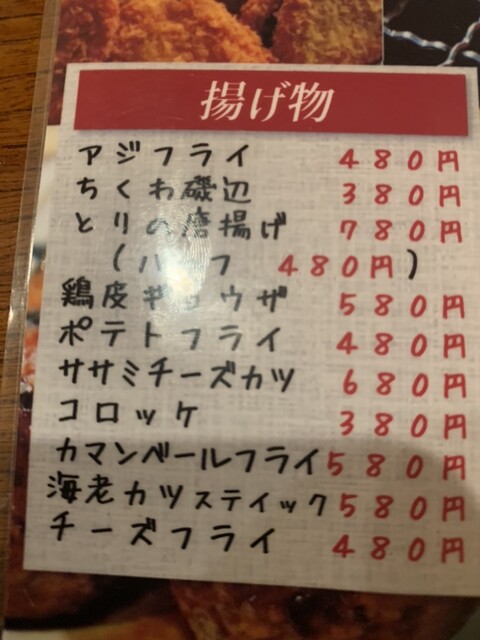 揚げ物
アジフライ 480円
ちくわ磯辺 380円
とりの唐揚げ 780円
(ハーフ 480円)
鶏皮ギョウザ 580円
ポテトフライ 480円
ササミチーズカツ 680円
コロッケ 380円
カマンベールフライ 580円
海老カツスティック 580円
チーズフライ 480円